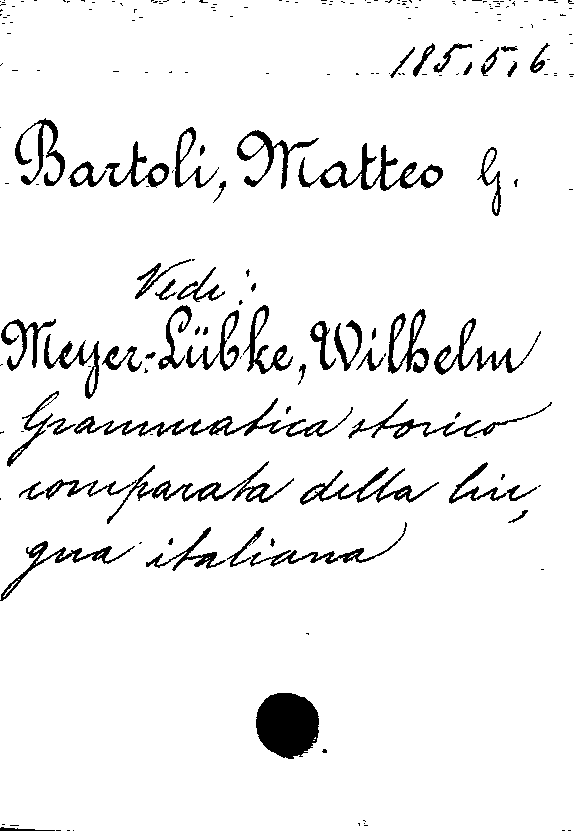 185.5.6
Bartoli, Matteo G.
Vedi:
Meyer-Lübke, Wilhelm
Grammatica storico
comparata della lin,
gua italiana